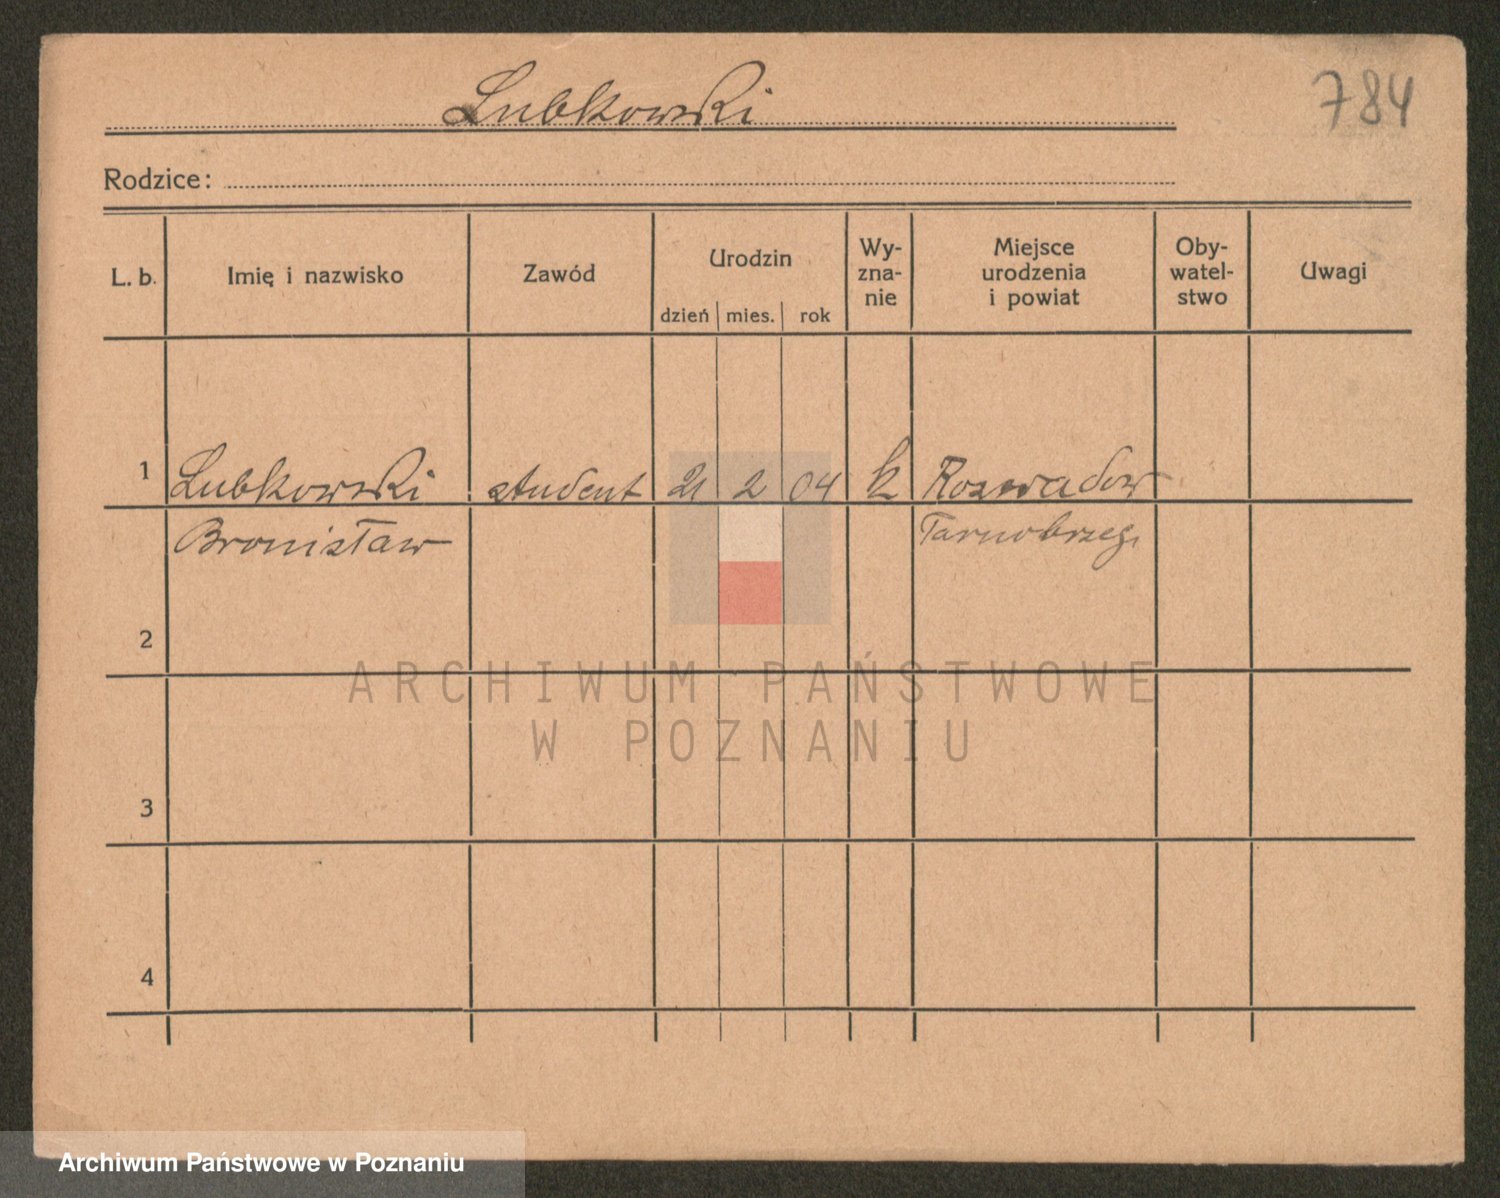 Lubkowski
784
Rodzice:
L. b.
Imię i nazwisko
Zawód
Urodzin
dzień mies. rok
Wy-
zna-
nie
Miejsce
urodzenia
i powiat
Oby-
watel-
stwo
Uwagi
1 Lubkowski student 21 2 04 k Rozwadow
Bronisław Tarnobrzeg
2
3
4
ARCHIWUM PAŃSTWOWE
W POZNANIU
Archiwum Państwowe w Poznaniu